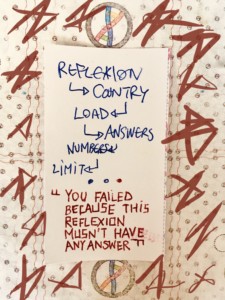 REFLEXION
COUNTRY
LOAD
ANSWERS
NUMBERS
LIMIT
"YOU FAILED
BECAUSE THIS
REFLEXION
MUSN'T HAVE
ANY ANSWER"